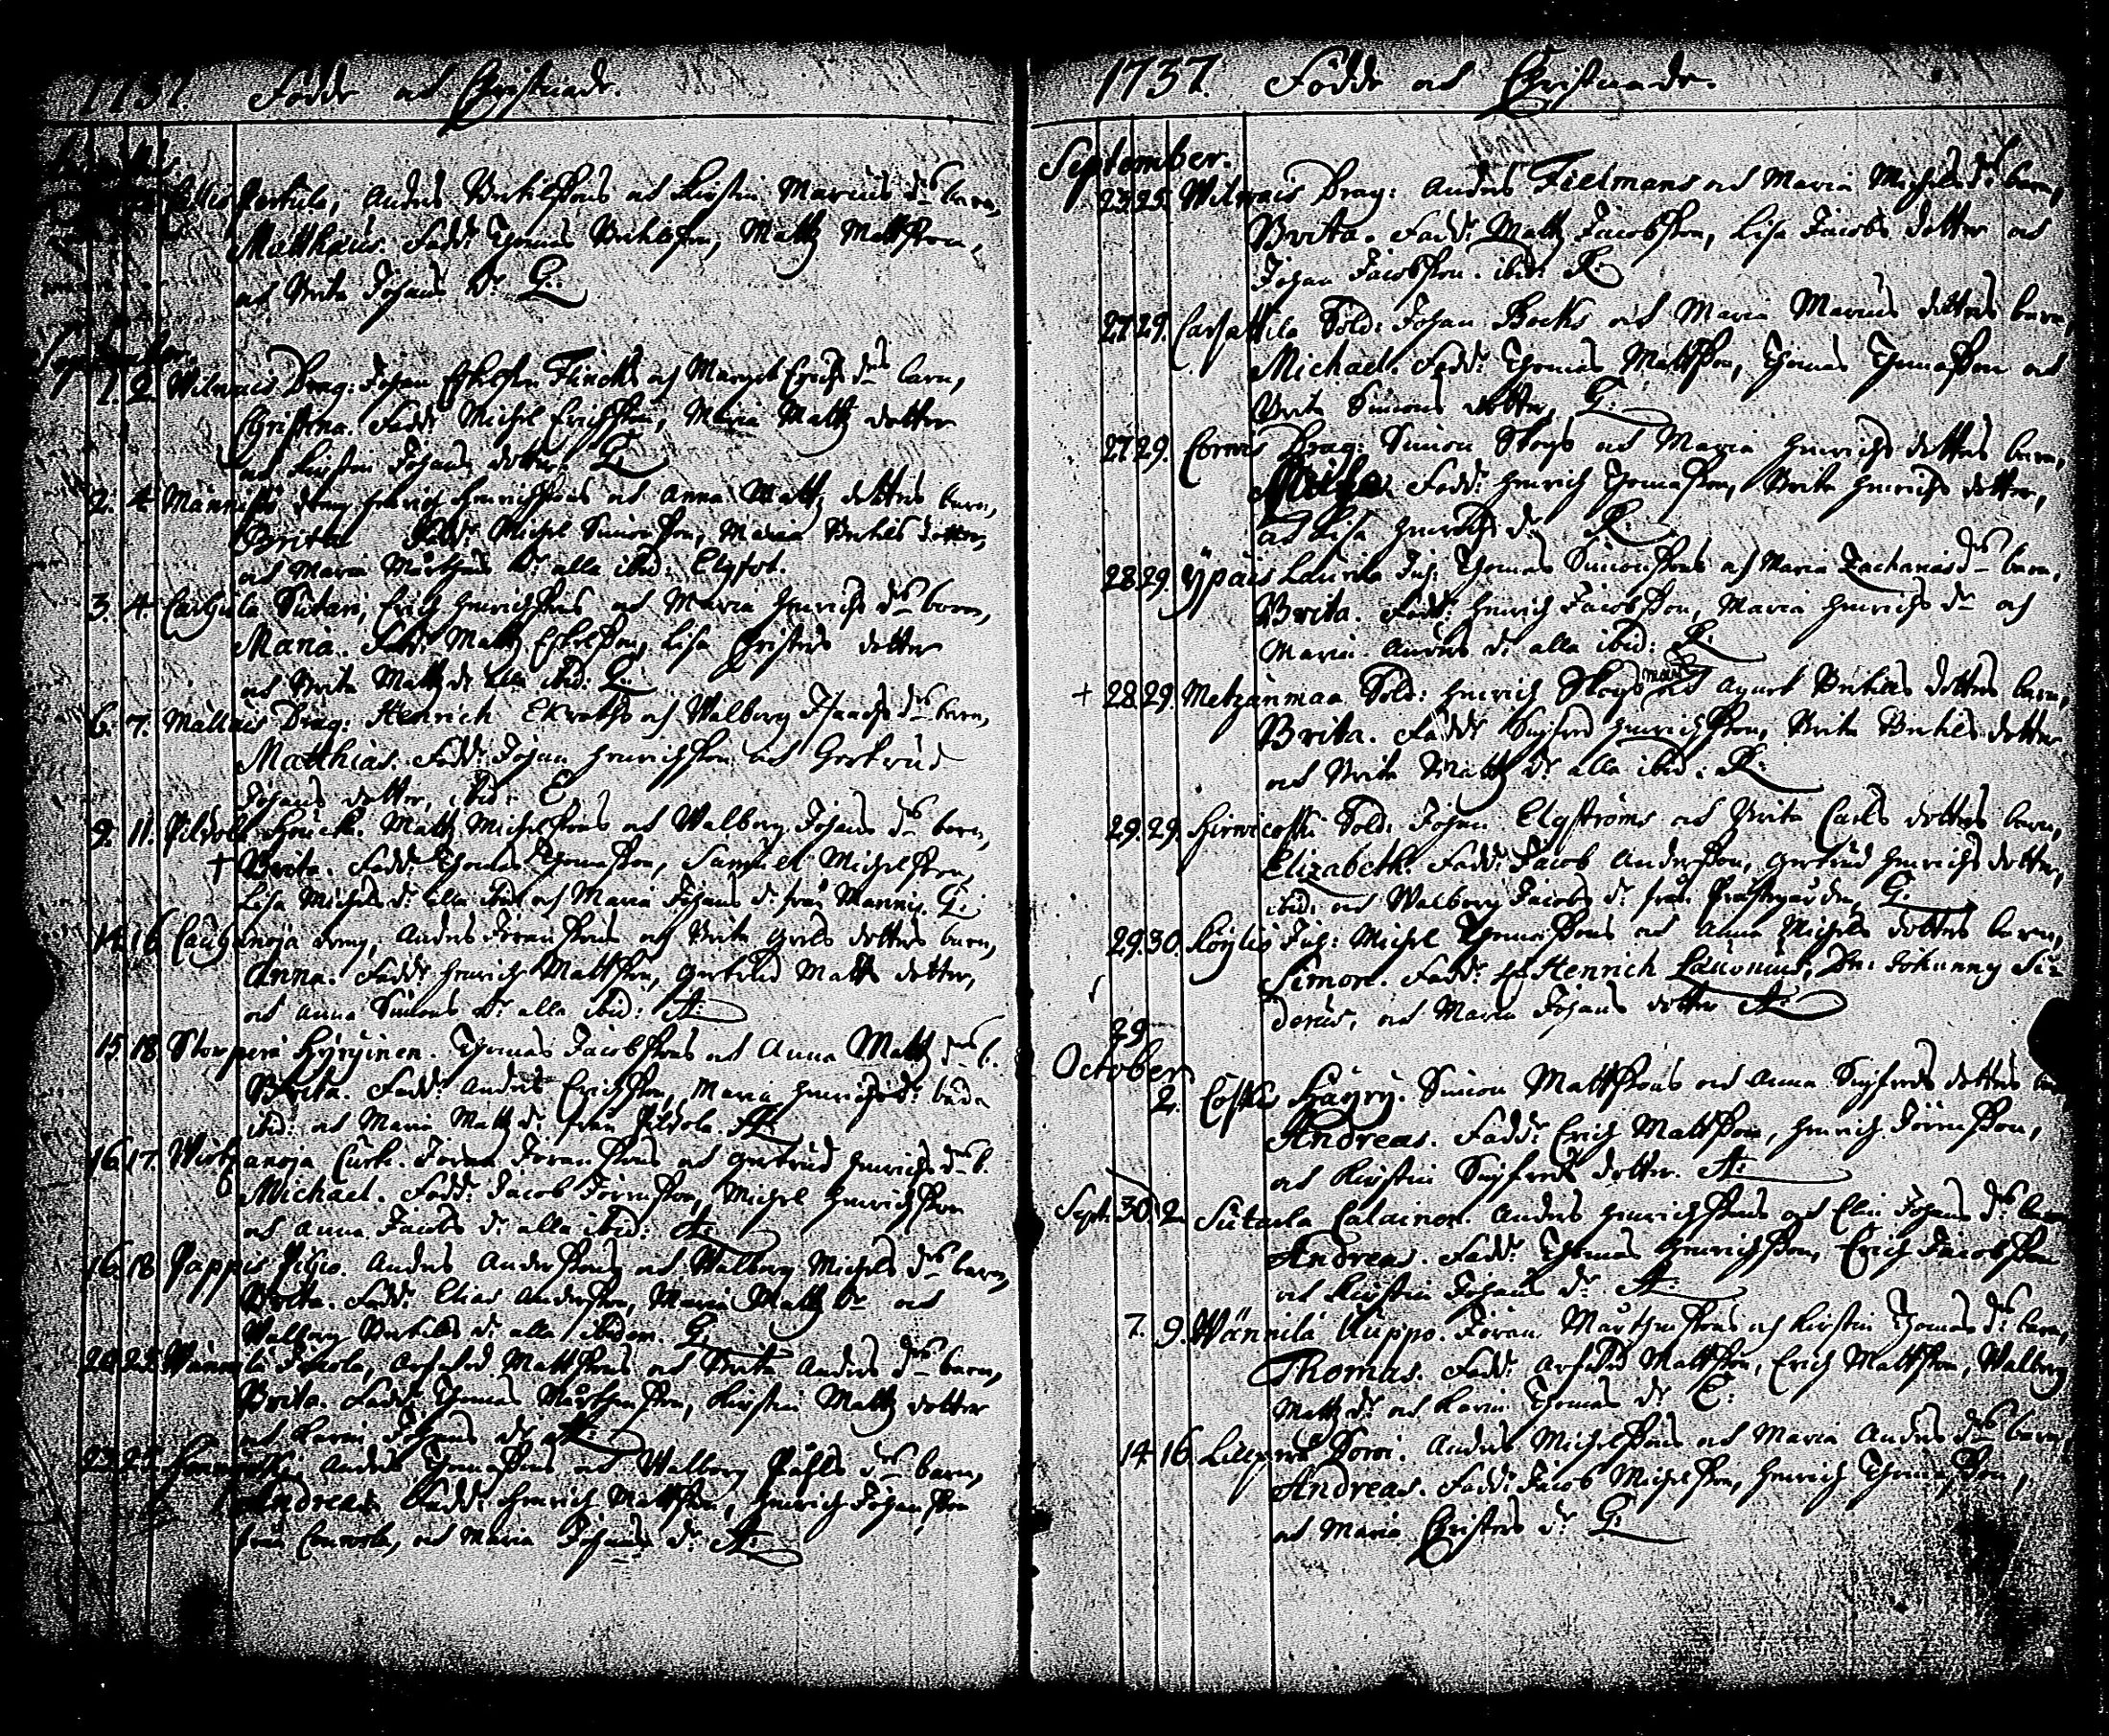 1737. Födde och Christnade.
Perttula, Anders Bertilssons och Kirstin Marcus drs barn,
Matthaeus. Fadd: Thomas Bertilsson, Matts Mattsson,
och Brita Johans dr G:
September.
1. 2. Wilunais Drag: Johan Eskelss. Flincks och Margret Erichs drs barn,
Christina. Fadd: Michel Erichsson, Maria Matts dotter
och Kirstin Johans dotter. G:
2. 4. Männistö dreng Henrich Henrichssons och Anna Matts dotters barn,
Brita Fadd: Michel Simonsson, Maria Bertils dotter,
och Maria Mårthens dr alla ibid: Elgfot.
3. 4. Caukula Sutari, Erich Henrichssons och Maria Henrichs drs barn,
Maria. Fadd: Matts Eskelsson, Lisa Christers dotter
och Brita Matts dr alla ibid: G:
6. 7. Mällais Drag: Henrich Ekroths och Walborg Isaachs drs barn,
Matthias. Fadd: Johan Henrichsson och Gertrud
Johans dotter, ibid: E
9. 11. Pildola Heucka. Matts Michelssons och Walborg Johans drs barn,
+ Brita. Fadd: Thomas Thomasson, Samuel Michelsson,
Lisa Michels dr alla ibid och Maria Johans dr från Mannis. G:
14. 16. Caughanoja dreng, Anders Jöranssons och Brita Grels dotters barn,
Anna. Fadd: Henrich Mattsson, Gertrud Matts dotter,
och Anna Simons dr alla ibid: A:
15. 18. Storperä Hyryinen. Thomas Jacobssons och Anna Matts drs b.
Brita. Fadd: Anders Erichsson, Maria Henrichs dr båda
ibid: och Maria Matts dr från Pildola. A:
16. 17. Wirtzanoja Curki. Jöran Jöranssons och Gertrud Henrichs drs b.
Michael. Fadd: Jacob Jöransson, Michel Henrichsson
och Anna Jacobs dr alla ibid: A:
16. 18. Pappis Pilgo. Anders Anderssons och Walborg Michels drs barn,
Brita. Fadd: Elias Andersson, Maria Matts dr och
Walborg Bertils dr alla ibidem. G:
Jusola, Arfwed Mattssons och Brita Anders drs barn,
Brita. Fadd: Thomas Mårthensson, Kirstin Matts dotter
och Karin Johans dr A:
Anders Thomassons och Walborg Påhls drs barn,
Andreas. Fadd: Henrich Mattsson, Henrich Johansson
från och Maria Johans dr A:
1737. Födde och Christnade.
September.
23. 25. Wilunais Drag: Anders Fielmans och Maria Michels drs barn,
Brita. Fadd: Matts Jacobsson, Lisa Jacobs dotter och
Johan Jacobsson. ibid: R:
27. 29. Carhattila Sold: Johan Bocks och Maria Marcus dotters barn,
Michael. Fadd: Thomas Mattsson, Thomas Thomasson och
Brita Simons dotter, G:
27. 29. Cornis Drag: Simon Skogs och Maria Henrichs dotters barn,
Fadd: Henrich Thomasson, Brita Henrichs dotter,
och Lisa Henrichs dr R:
28. 29. Ypäis Laurila Inh: Thomas Simonssons och Maria Zacharias drs barn,
Brita. Fadd: Henrich Jacobsson, Maria Henrichs dr och
Maria Anders dr alla ibid: R:
+ 28. 29. Metzänmaa Sold: Henrich Skogs och Agnet Bertils dotters barn,
Brita. Fadd: Sigfred Henrichsson, Brita Bertils dotter
och Brita Matts dr alla ibid: R:
29. 29. Hirwicoski Sold: Johan Elgströms och Brita Carls dotters barn,
Elizabeth. Fadd: Jacob Andersson, Gertrud Henrichs dotter,
ibid: och Walborg Jacobs dr från Prästegården, G:
29. 30. Köylis Inh: Michel Thomassons och Anna Michels dotters barn,
Simon. Fadd: Henrich Lauonius, Dn: Johanny Si-
derus, och Maria Johans dotter A:
29
October
2. Coskis Häyry. Simon Mattssons och Anna Sigfreds dotters
Andreas. Fadd: Erich Mattsson, Henrich Jöransson,
och Kirstin Sigfreds dotter. A:
Sept: 30. 2. Sutarla Calainen. Anders Henrichssons och Elin Johans drs barn
Andreas. Fadd: Thomas Henrichsson, Erich Jacobsson
och Kirstin Johans dr A:
7. 9. Wännilä Uuppo. Jöran Mårthenssons och Kirstin Thomas drs barn,
Thomas. Fadd: Arfwed Mattsson, Erich Mattsson, Walborg
Matts dr och Karin Thomas dr E:
14. 16. Lillperä Sorri. Anders Michelssons och Maria Anders drs barn,
Andreas. Fadd: Jacob Michelsson, Henrich Thomasson,
och Maria Christers dr G: